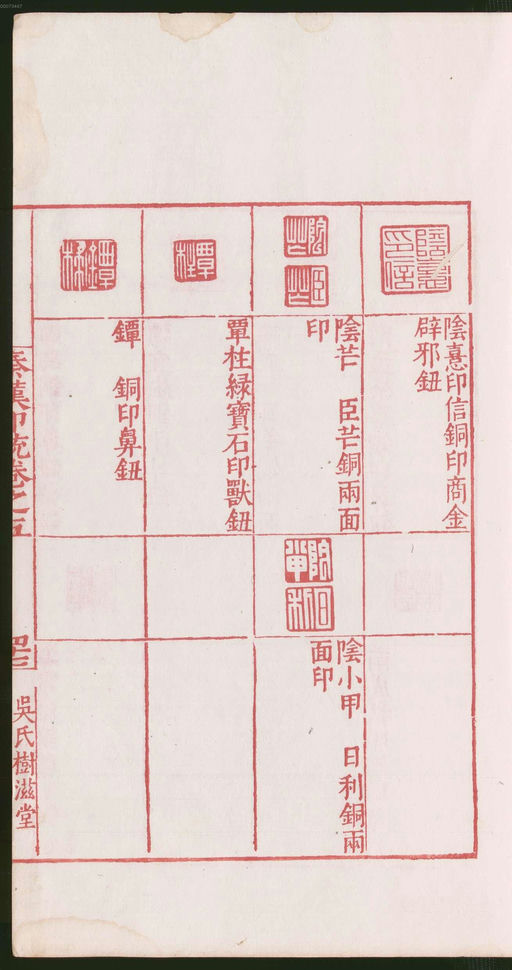 陰憙印信銅印商金
辟邪鈕
陰芒　臣芒銅兩面
印
陰小甲　日利銅兩
面印
覃柱綠寶石印獸鈕
鐔　銅印鼻鈕
秦漢印統卷之五
吳氏樹滋堂
00073447